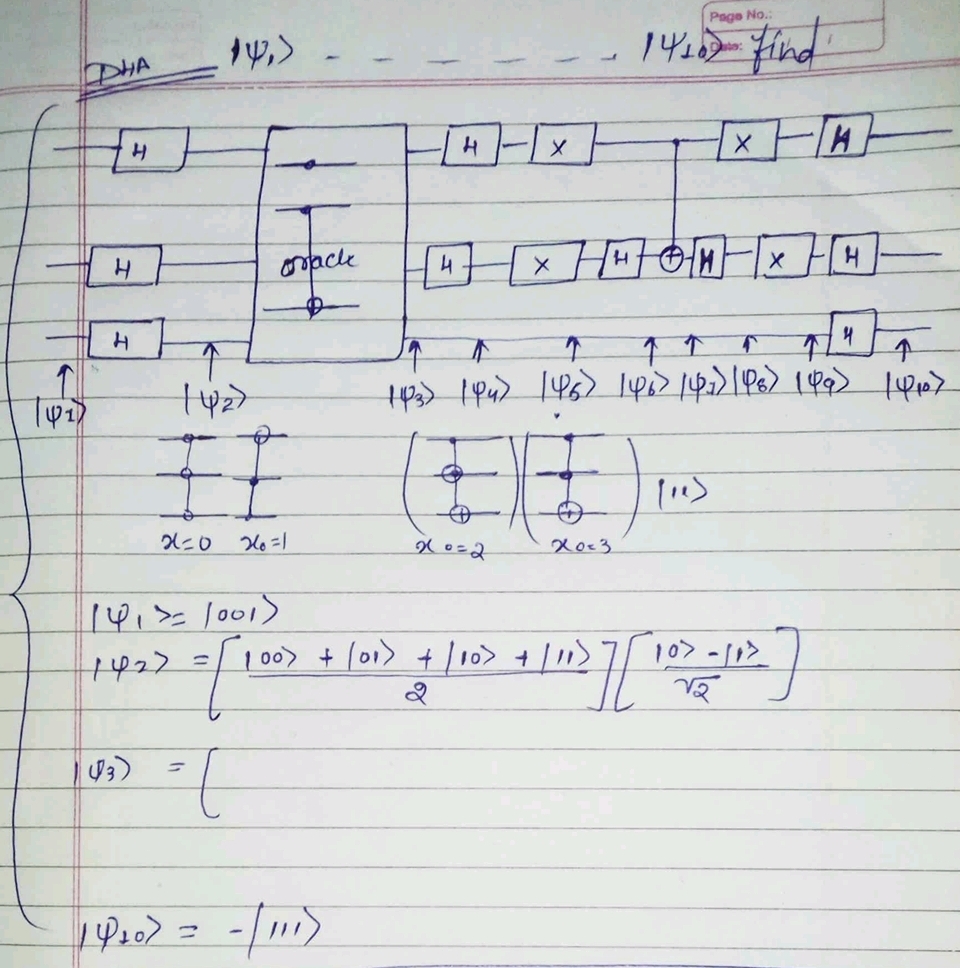 Page No.:
Date:
DHA |ψ₁> - - - - - - - |ψ₁₀> find
H H X X H
oracle
H H X H H X H
H H
|ψ₁> |ψ₂> |ψ₃> |ψ₄> |ψ₅> |ψ₆> |ψ₇> |ψ₈> |ψ₉> |ψ₁₀>
|11>
x=0 x₀=1 x₀=2 x₀=3
|ψ₁>= |001>
|ψ₂> = [ |00> + |01> + |10> + |11> / 2 ] [ |0> - |1> / √2 ]
|ψ₃> = [
|ψ₁₀> = -|111>